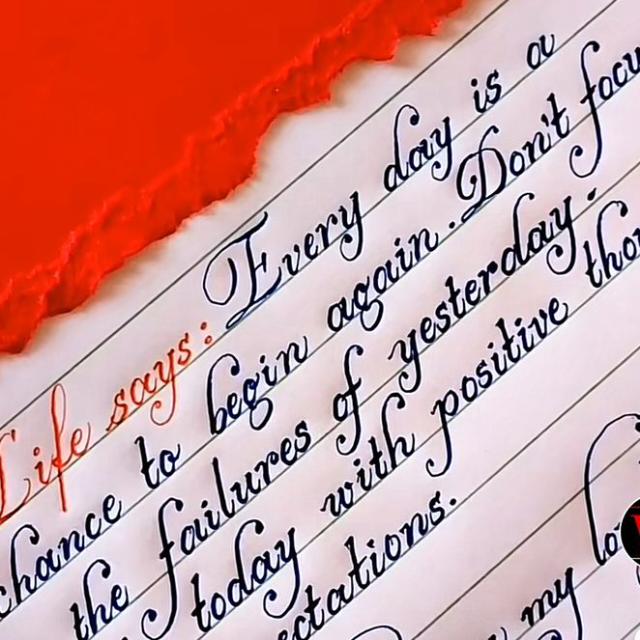 Life says: Every day is a
chance to begin again. Don't focu
the failures of yesterday.
today with positive thou
ectations.
my